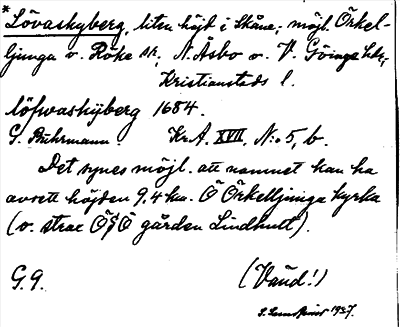 * Lövaskyberg, liten höjd i Skåne; möjl. Örkel-
ljunga o. Röke sn, N. Åsbo o. V. Göinge hdr,
Kristianstads l.
löfwaskÿberg 1684.
G. Buhrmann. Kr.A. XVII, N:o 5, b.
Det synes möjl. att namnet kan ha
avsett höjden 9,4 km. Ö Örkelljunga kyrka
(o. strax ÖSÖ gården Lindhult).
G. 9. (Vaud!)
1927.